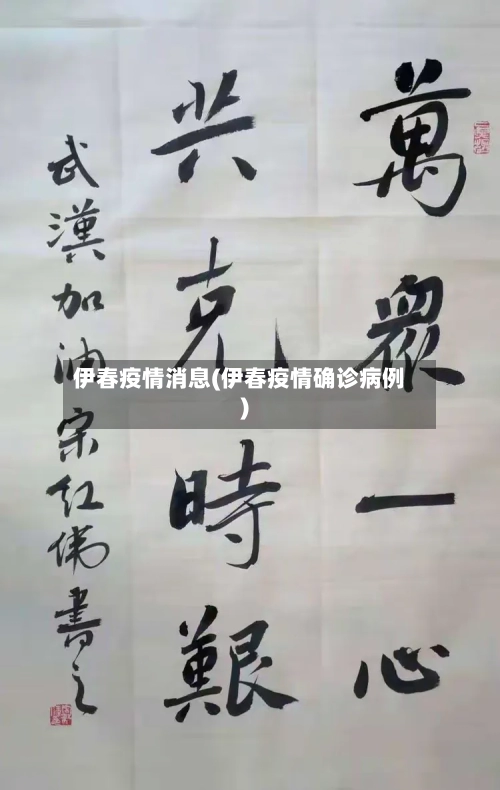 萬眾一心
共克時艱
武漢加油宗红偉書之
伊春疫情消息(伊春疫情确诊病例
)